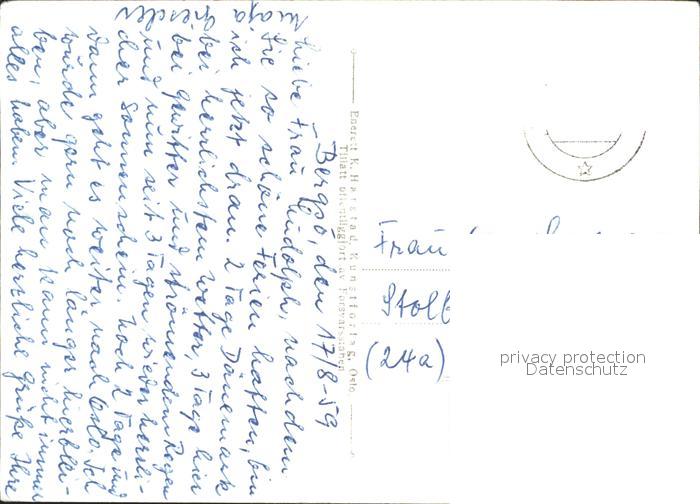 Bergsö, den 17/8-59
Liebe Frau Rudolph, nachdem
Sie so schöne Ferien hatten, bin
ich jetzt dran. 2 Tage Dänemark
bei herrlichstem Wetter, 3 Tage hier
bei Gewitter und strömendem Regen
und nun seit 3 Tagen wieder herrli-
cher Sonnenschein. Noch 2 Tage und
dann geht es weiter nach Oslo. Ich
würde gern noch länger hierblei-
ben, aber man kann nicht immer
alles haben. Viele herrliche Grüße Ihre
Enerett K. Harstad, Kunstforlag, Oslo
Tillatt offentliggjort av Forsvarsstaben
Frau
Stolb
(24a)
privacy protection
Datenschutz